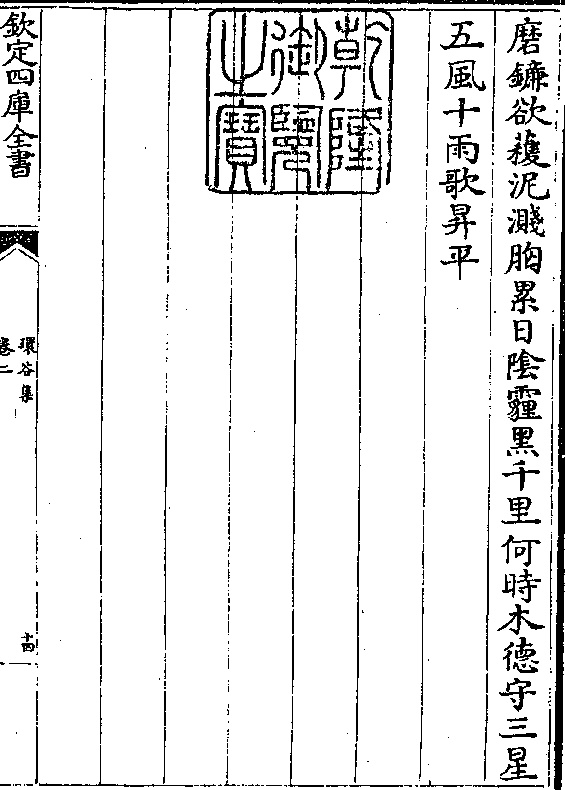 磨鐮欲穫泥濺胸累日陰霾黑千里何時木德守三星
五風十雨歌昇平
乾隆御覽之寶
欽定四庫全書
環谷集
卷二
十四